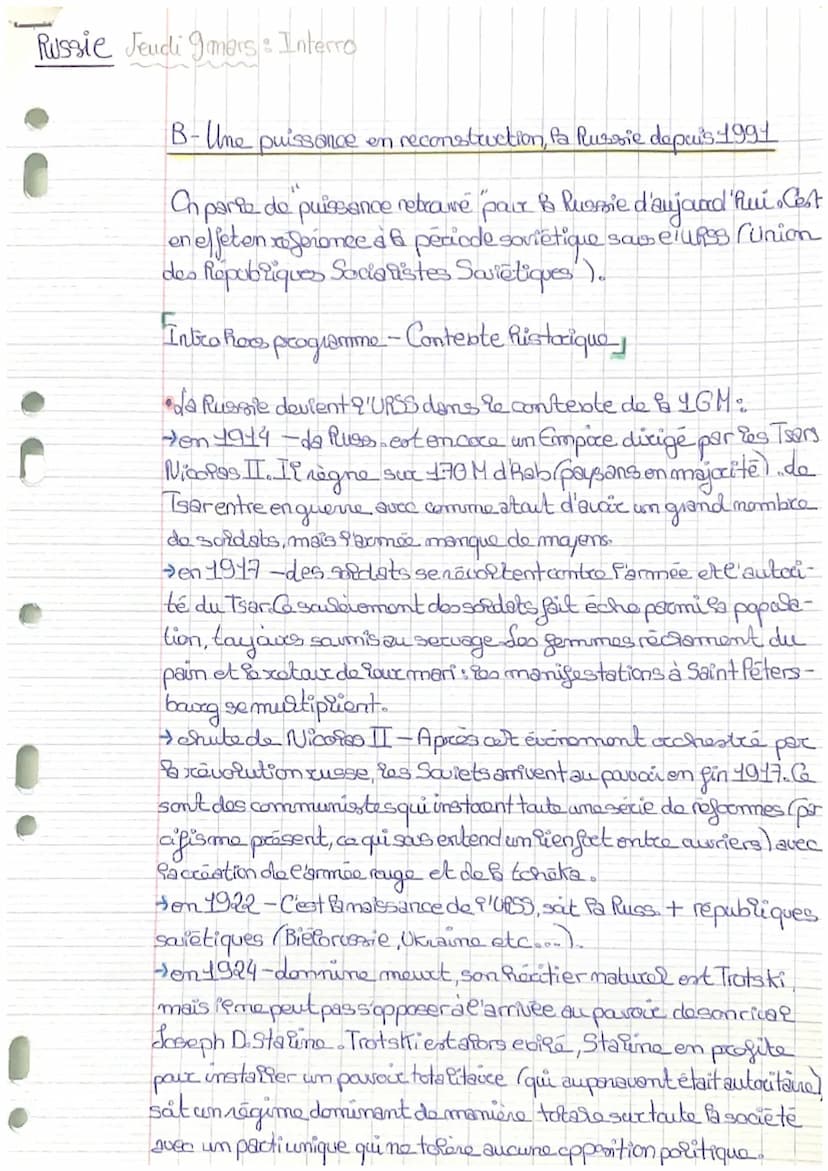 Russie Jeudi 9 mars : Interro
B- Une puissance en reconstruction, la Russie depuis 1991
On parle de "puissance retrouvé" pour la Russie d'aujourd'hui. C'est
en effet en référence à la période soviétique sous l'URSS ("Union
des Républiques Socialistes Soviétiques").
[Intro hors programme - Contexte historique]
• La Russie devient l'URSS dans le contexte de la 1GM :
→ en 1914 - la Russ. est encore un Empire dirigé par les Tsars
Nicolas II. Il règne sur 170 M d'hab (paysans en majorité). Le
Tsar entre en guerre avec comme atout d'avoir un grand nombre
de soldats, mais l'armée manque de moyens.
→ en 1917 - des soldats se révoltent contre l'armée et l'autori-
té du Tsar. Ce soulèvement des soldats fait écho parmi la popula-
tion, toujours soumis au servage. Les femmes réclament du
pain et le retour de leur mari : les manifestations à Saint Péters-
bourg se multiplient.
→ chute de Nicolas II - Après cet événement orchestré par
la révolution russe, les Soviets arrivent au pouvoir en fin 1917. Ce
sont des communistes qui instaurent toute une série de réformes (pa-
cifisme présent, ce qui sous entend un lien fort entre ouvriers) avec
la création de l'armée rouge et de la tchéka.
→ en 1922 - C'est la naissance de l'URSS, soit la Russ. + républiques
soviétiques (Biélorussie, Ukraine etc...).
→ en 1924 - Lénine meurt, son héritier naturel est Trotski,
mais il ne peut pas s'opposer à l'arrivée au pouvoir de son rival
Joseph D. Staline. Trotski est alors exilé, Staline en profite
pour installer un pouvoir totalitaire (qui auparavant était autoritaire)
soit un régime dominant de manière totale sur toute la société
avec un parti unique qui ne tolère aucune opposition politique.